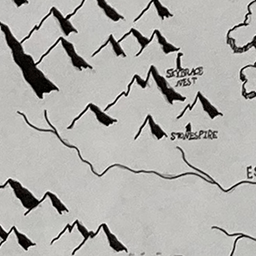 SKYGRACE
NEST
STONESPIRE
ES